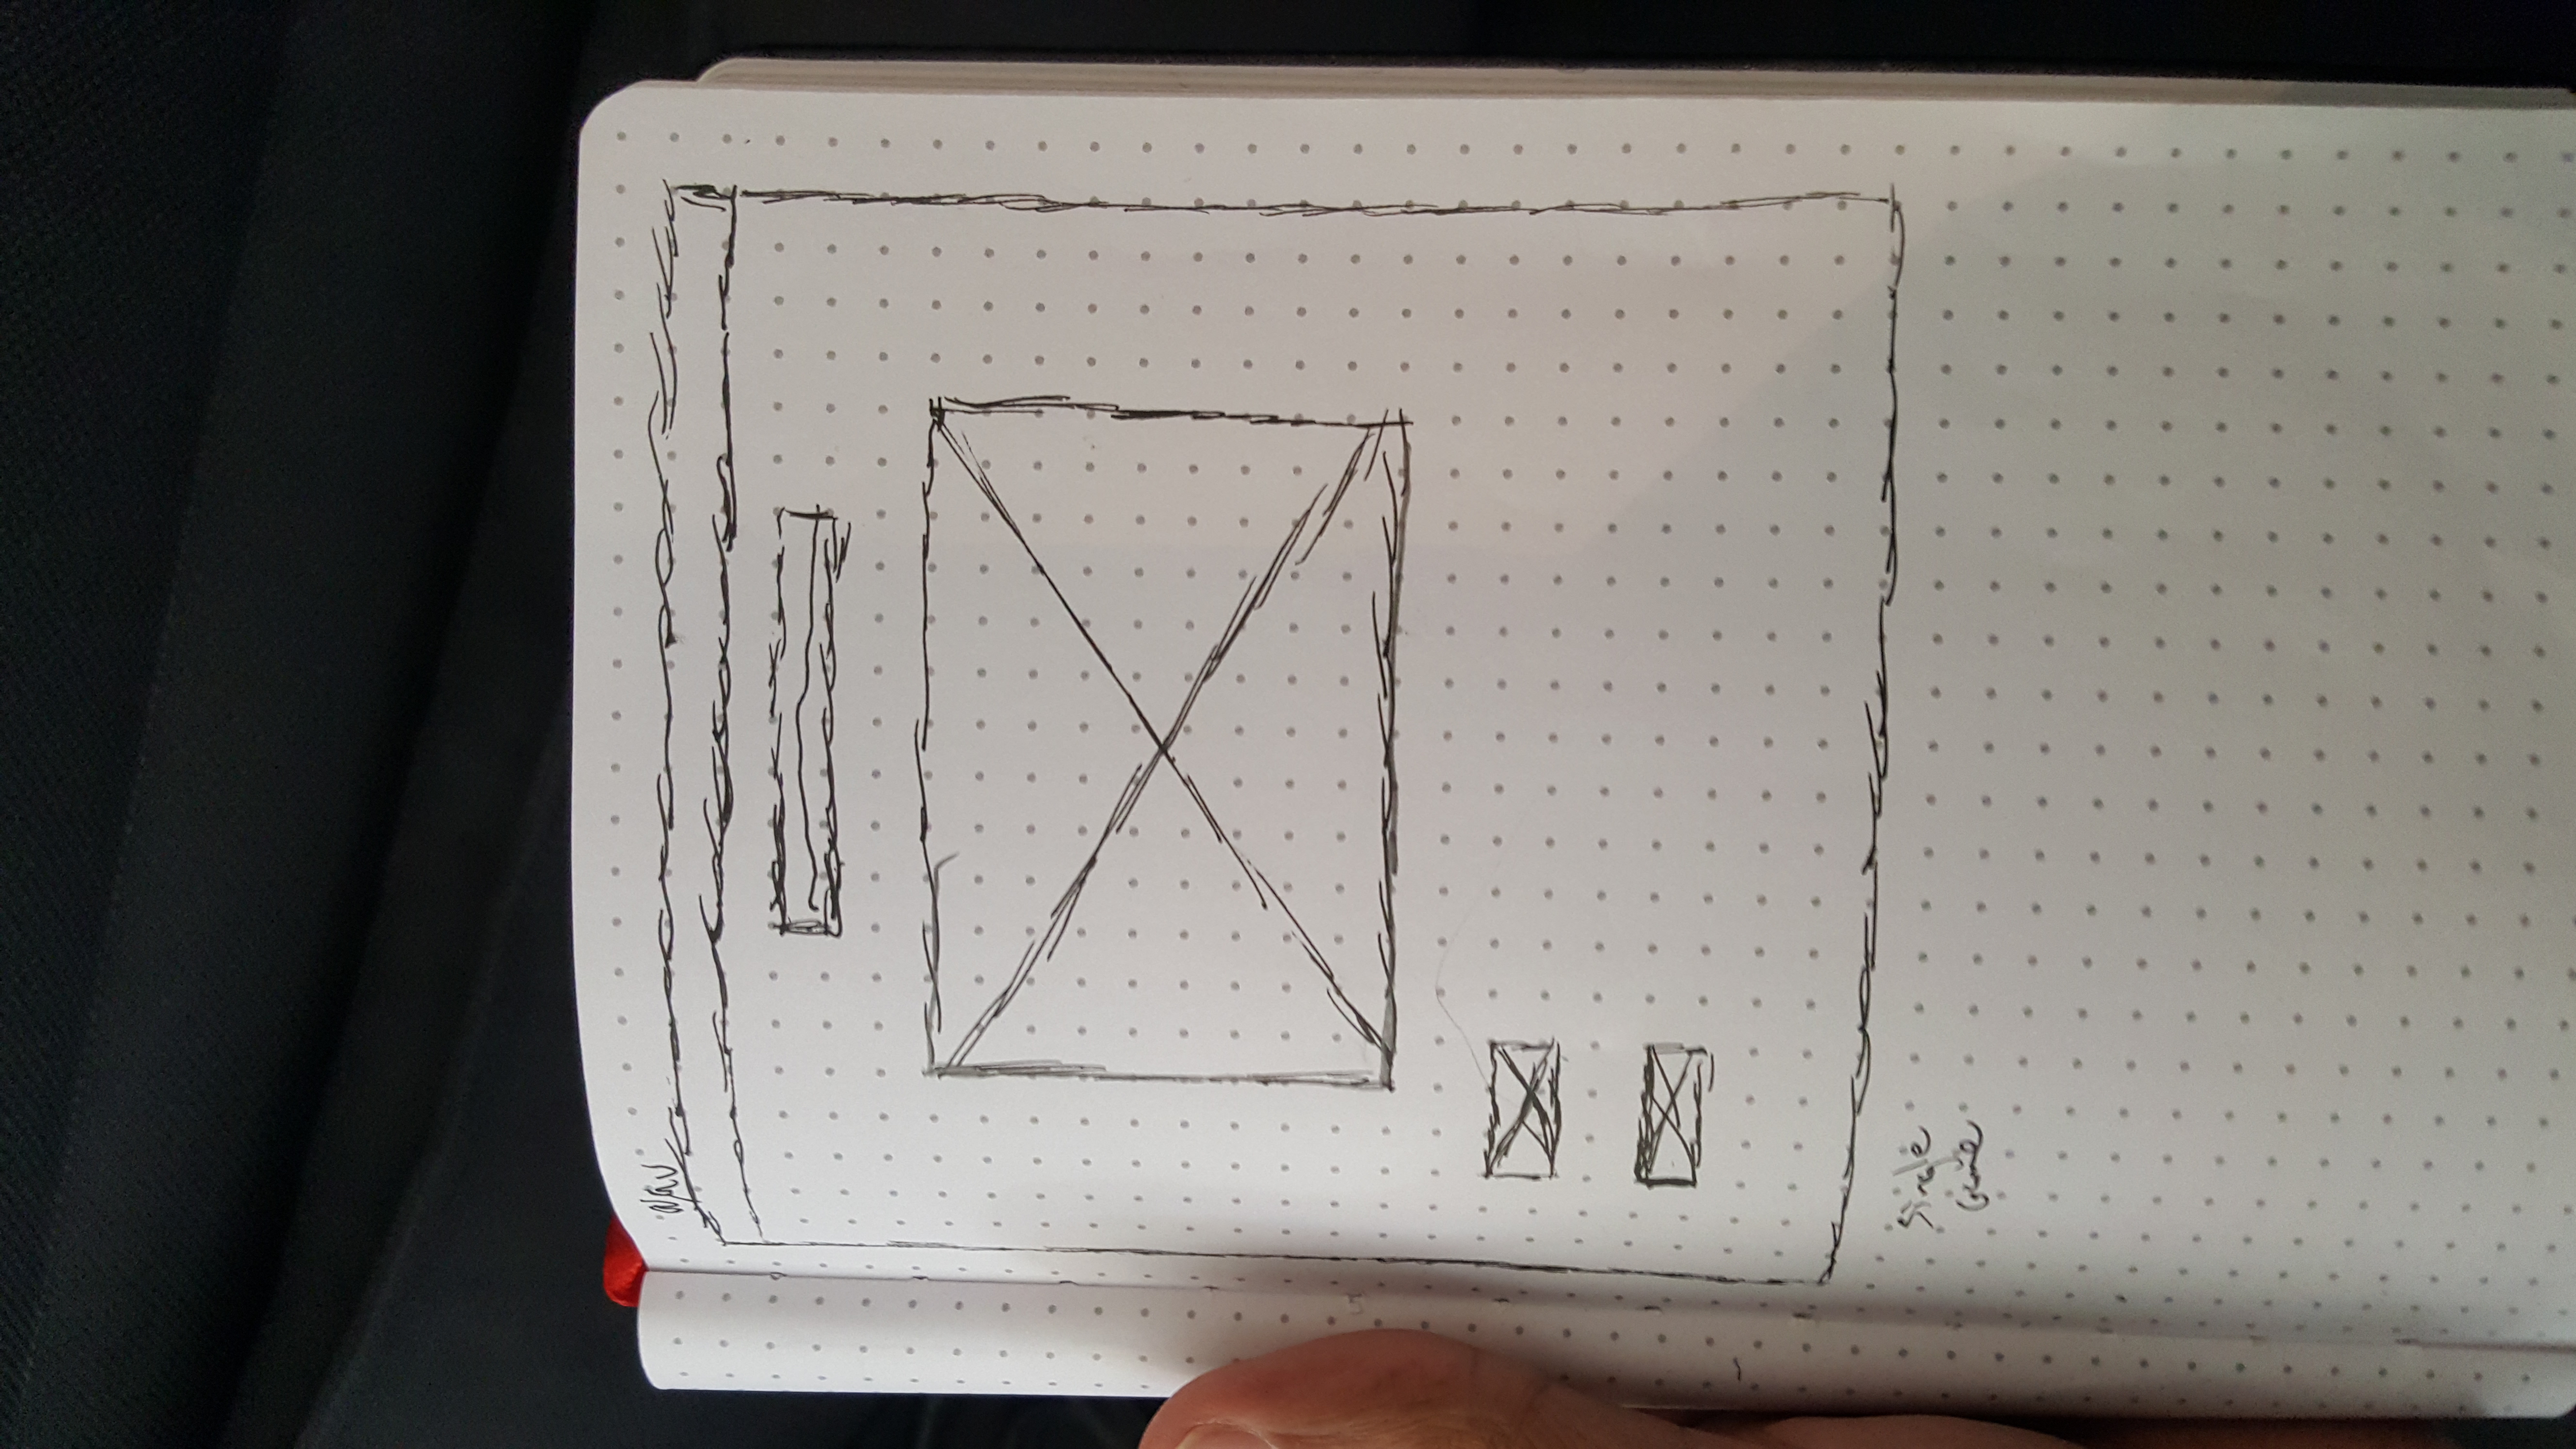 nav
Single
Game